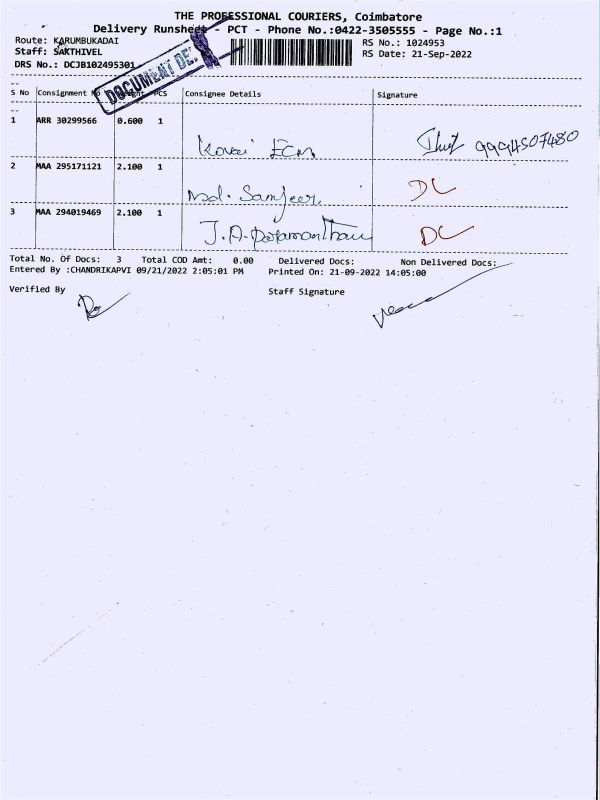 THE PROFESSIONAL COURIERS, Coimbatore
Delivery Runsheet - PCT - Phone No.:0422-3505555 - Page No.:1
Route: KARUMBUKADAI
RS No.: 1024953
Staff: SAKTHIVEL
RS Date: 21-Sep-2022
DRS No.: DCJB102495301
DOCUMENT DE
S No Consignment No PCS Consignee Details Signature
1 ARR 30299566 0.600 1
Kovai 9994507480
2 MAA 295171121 2.100 1
Md. Samjeer. DL
3 MAA 294019469 2.100 1
J.A. DL
Total No. Of Docs: 3 Total COD Amt: 0.00 Delivered Docs: Non Delivered Docs:
Entered By :CHANDRIKAPVI 09/21/2022 2:05:01 PM Printed On: 21-09-2022 14:05:00
Verified By Staff Signature